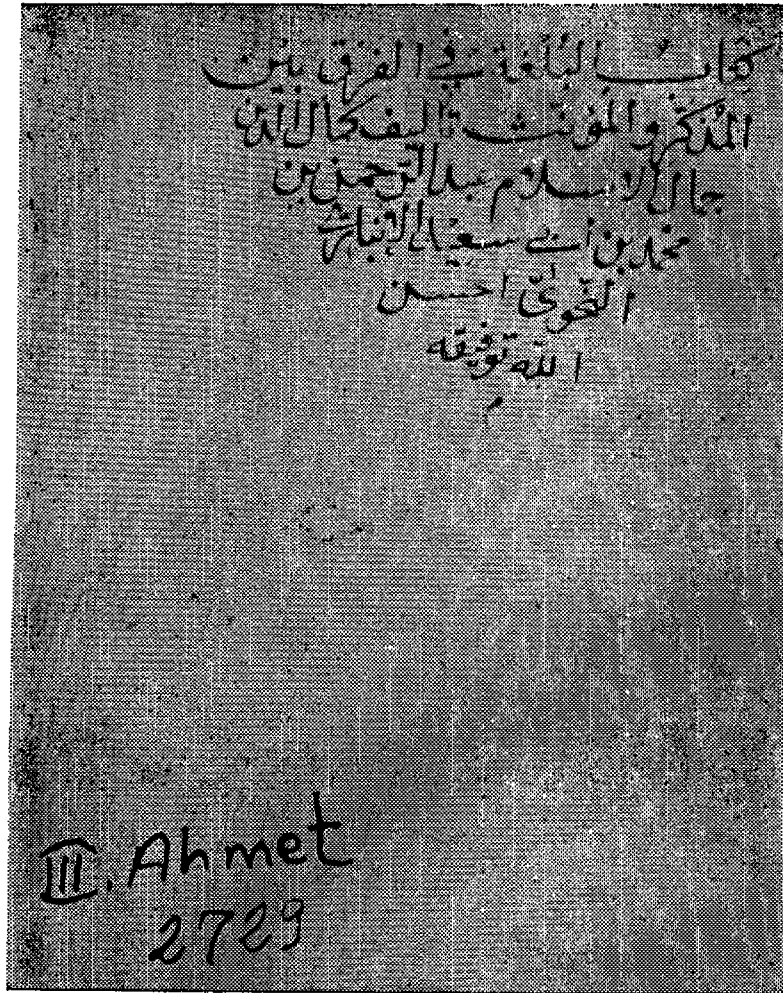 كتاب البُلْغة في الفرق بين
المُذكّر والمؤنّث تأليف كمال الدّين
جمال الاسلام عبد الرّحمن بن
محمد بن أبي سعيد الانباريّ
النّحويّ احسن
اللّه توفيقه
م
III. Ahmet
2729